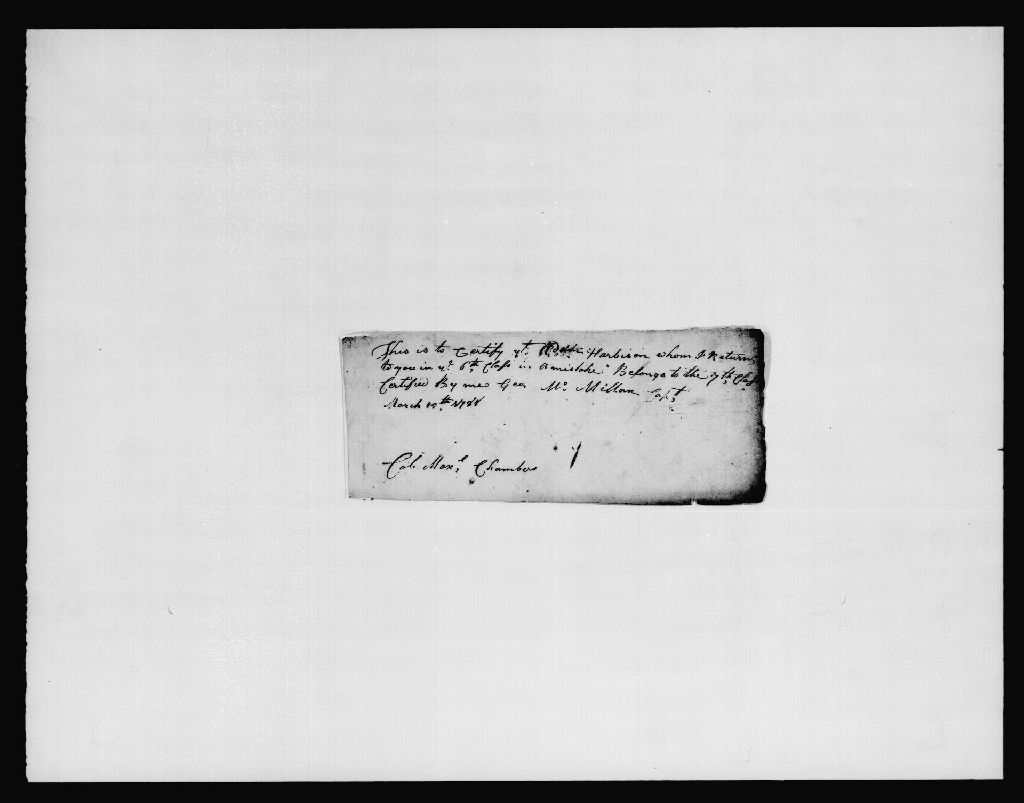 This is to Certify yt. Harbison whom I Return
to you in ye. 6th Class in a mistake Belongs to the 7th Class
Certified By me Geo. Mc. Millan Capt
March
Col. Maxl. Chambers